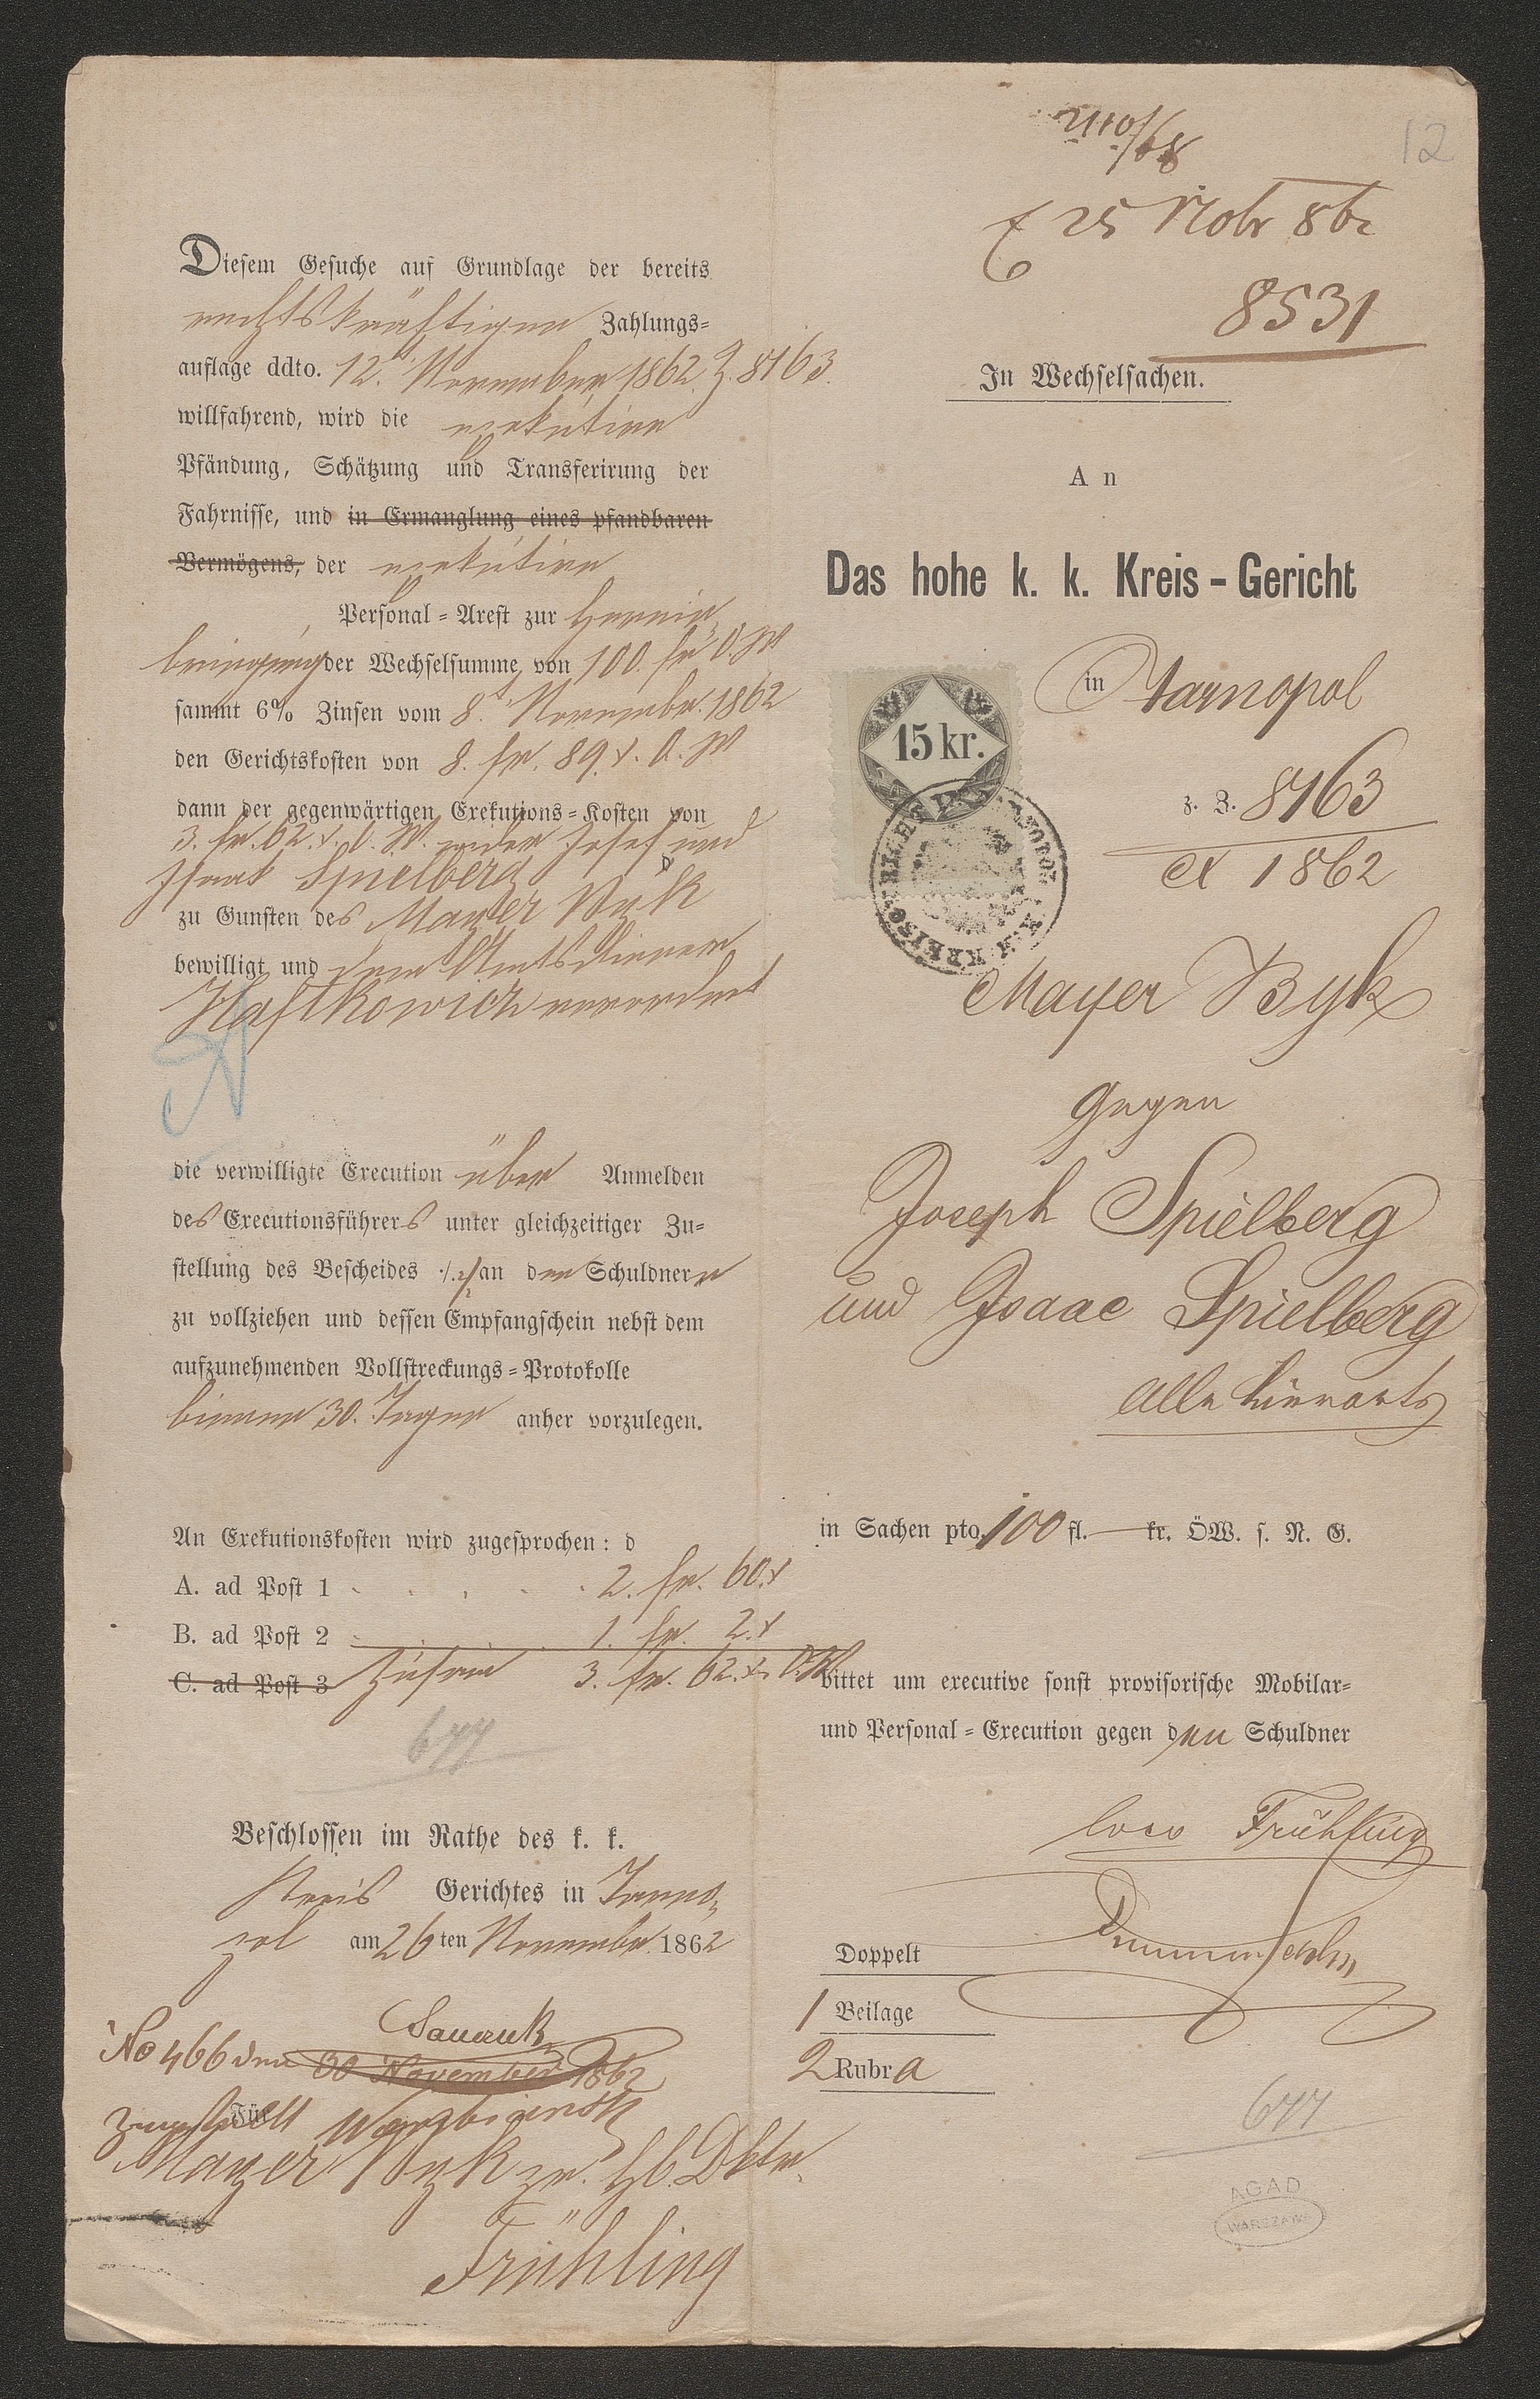 Diesem Gesuche auf Grundlage der bereits
rechtskräftigen Zahlungs-
auflage ddto. 12. November 1862 Z. 8163.
willfahrend, wird die exekutive
Pfändung, Schätzung und Transferirung der
Fahrnisse, und in Ermanglung eines pfandbaren
Vermögens, der exekutive
Personal-Arest zur Herein-
bringung der Wechselsumme von 100 fr Ö.W
sammt 6% Zinsen vom 8. November 1862
den Gerichtskosten von 8. fr. 89. x. Ö.W
dann der gegenwärtigen Exekutions-Kosten von
3. fr. 62. x. Ö.W. wider Josef und
Isaak Spielberg
zu Gunsten des Mayer Byk
bewilligt und dem Amtsdiener
verordnet
die verwilligte Execution über Anmelden
des Executionsführers unter gleichzeitiger Zu-
stellung des Bescheides ·/. an den Schuldnern
zu vollziehen und dessen Empfangschein nebst dem
aufzunehmenden Vollstreckungs-Protokolle
binnen 30. Tagen anher vorzulegen.
An Exekutionskosten wird zugesprochen: d
A. ad Post 1 2. fr. 60. x
B. ad Post 2 1. fr. 2. x
C. ad Post 3 Zusam 3. fr. 62. x Ö.W
677
Beschlossen im Rathe des k. k.
Kreis Gerichtes in Tarno-
pol am 26 ten November 1862
No 466 den 30 November 1862
zugestellt Für
Mayer Byk zu Hd. Dktr.
Frühling
12
25 Nobr 862
8531
In Wechselsachen.
An
Das hohe k. k. Kreis-Gericht
in Tarnopol
15 kr.
z. Z. 8163
ex 1862
Mayer Byk
gegen
Joseph Spielberg
und Isaac Spielberg
alle hierorts
in Sachen pto. 100 fl. — kr. ÖW. s. N. G.
bittet um executive sonst provisorische Mobilar-
und Personal-Execution gegen den Schuldner
Frühling
Doppelt
1 Beilage
2 Rubra
677
AGAD
WARSZAWA